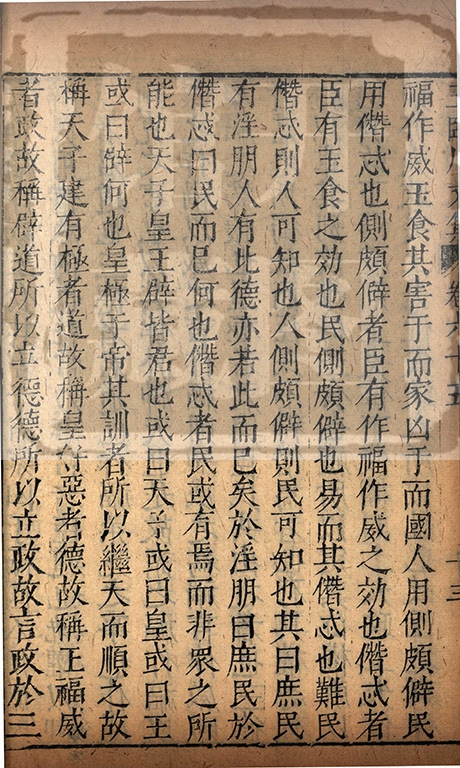 王臨川文集 卷六十五 十三
福作威玉食其害于而家凶于而國人用側頗僻民
用僭忒也側頗僻者臣有作福作威之効也僭忒者
臣有玉食之効也民側頗僻也易而其僭忒也難民
僭忒則人可知也人側頗僻則民可知也其曰庶民
有淫朋人有比德亦若此而已矣於淫朋曰庶民於
僭忒曰民而已何也僭忒者民或有焉而非衆之所
能也天子皇王辟皆君也或曰天子或曰皇或曰王
或曰辟何也皇極于帝其訓者所以繼天而順之故
稱天子建有極者道故稱皇好惡者德故稱王福威
者政故稱辟道所以立德德所以立政故言政於三